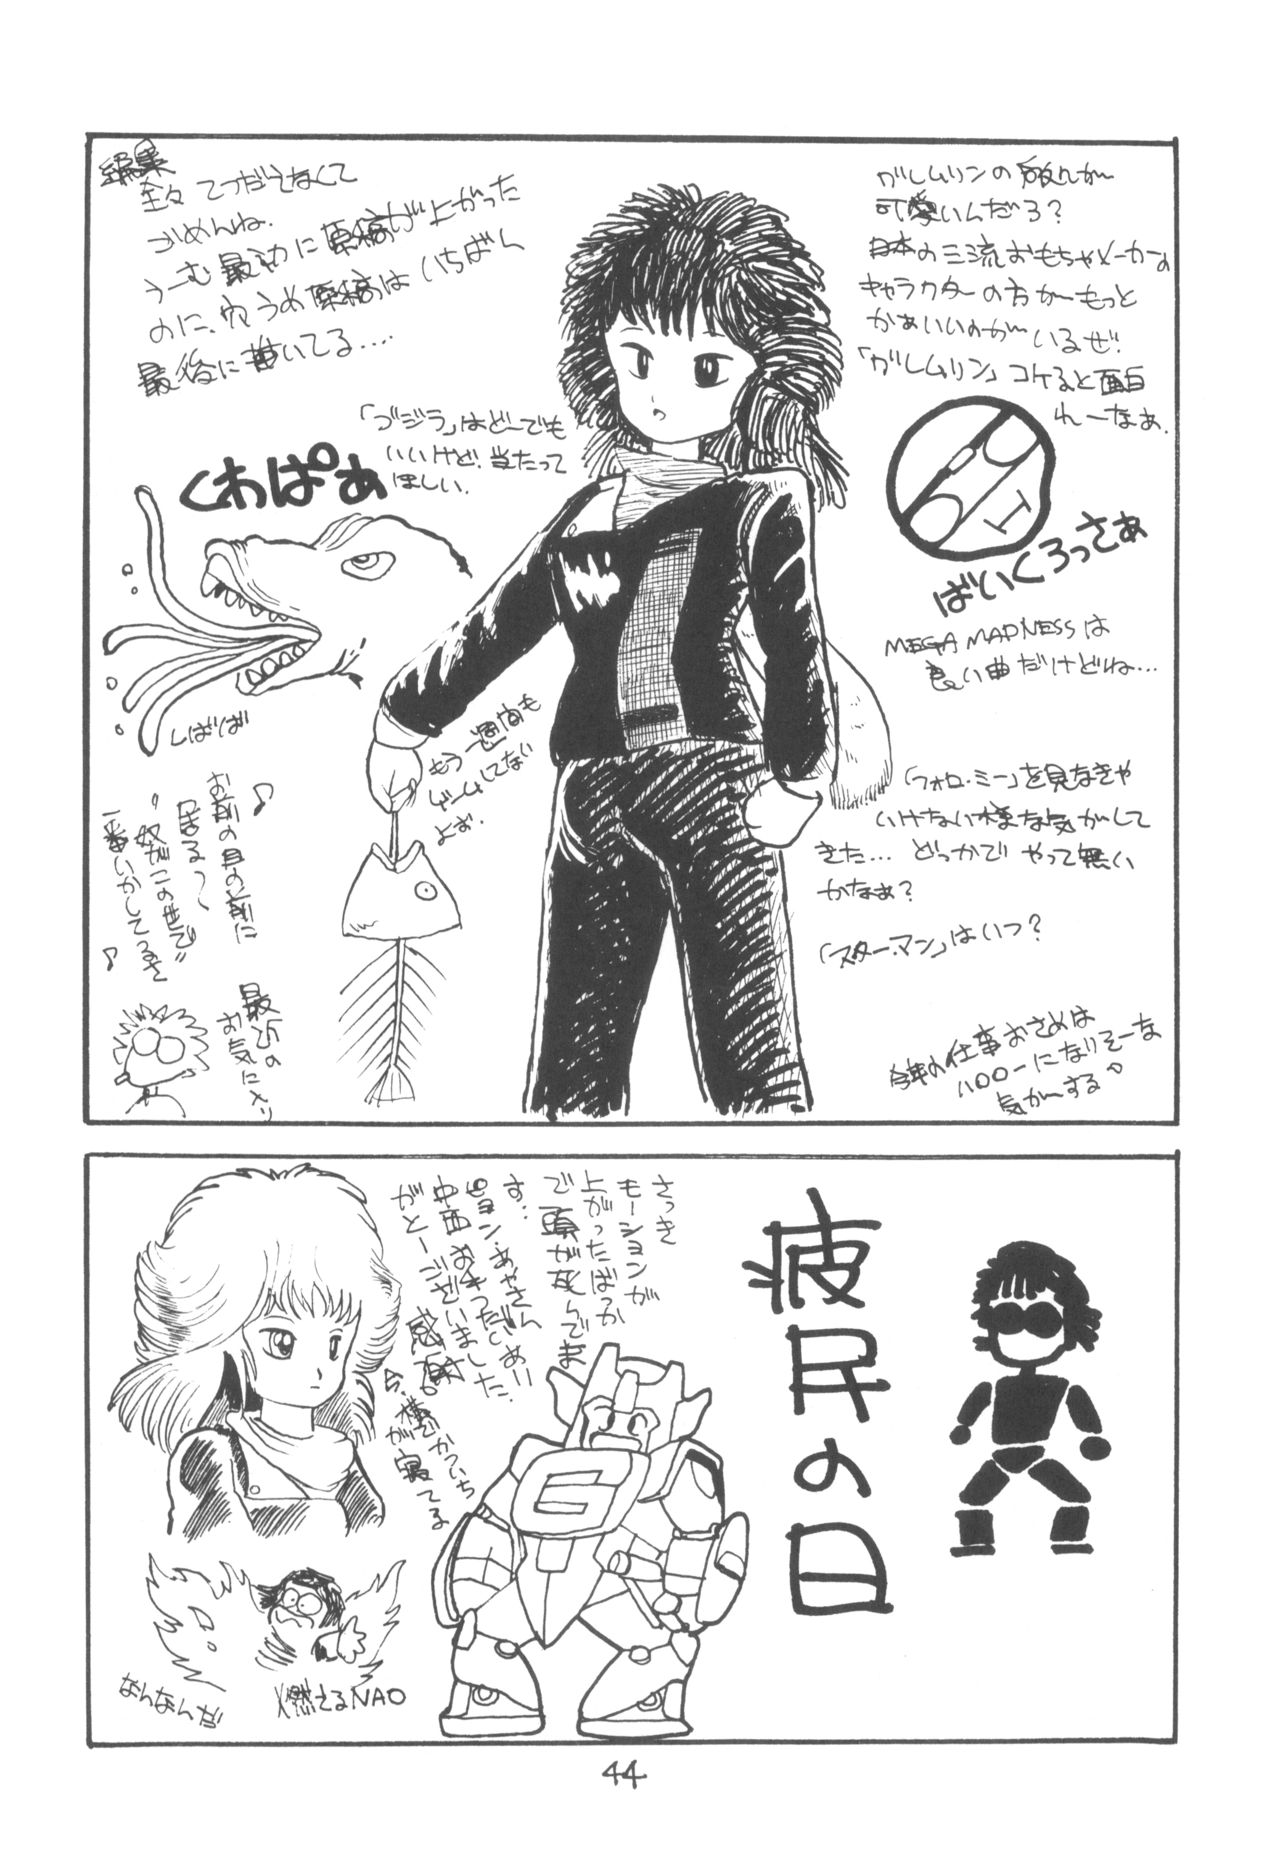 編集
全々てつだえなくて
ごめんね.
うーむ最初に原稿が上がった
のに、穴うめ原稿はいちばん
最後に書いてる....
ガレムリンの
可愛いんだろ?
日本の三流おもちゃメーカーの
キャラクターの方がーもっと
かあいいのがーいるぜ!
「ガレムリン」コケると面白
れーなぁ.
「ゴジラ」はどーでも
いいけど.当たって
ほしい.
くわぱぁ
しばば
ばいくろっさぁ
MEGA MADNESSは
良い曲だけどね...
もう一週間も
ゲームしてない
よお.
「フォロ・ミー」を見なきゃ
いけない様な気がして
きた... どっかで やって無い
かなぁ?
「スターマン」はいつ?
今年の仕事おさめは
ハロ○ーになりそーな
気がーする。
♪
お前の目の前に
居る〜
"奴がこの世で"
一番いかしてるさ
♪
最近の
お気に入り
疲民の日
さっき
モーションが
上がったばっか
で頭が死んでま
す...
ピョン・あやさん
中西おてつだいあり
がとーございました.
感謝。
今、横でかついち
が寝てる
G
なんなんだ
燃えるNAO
44